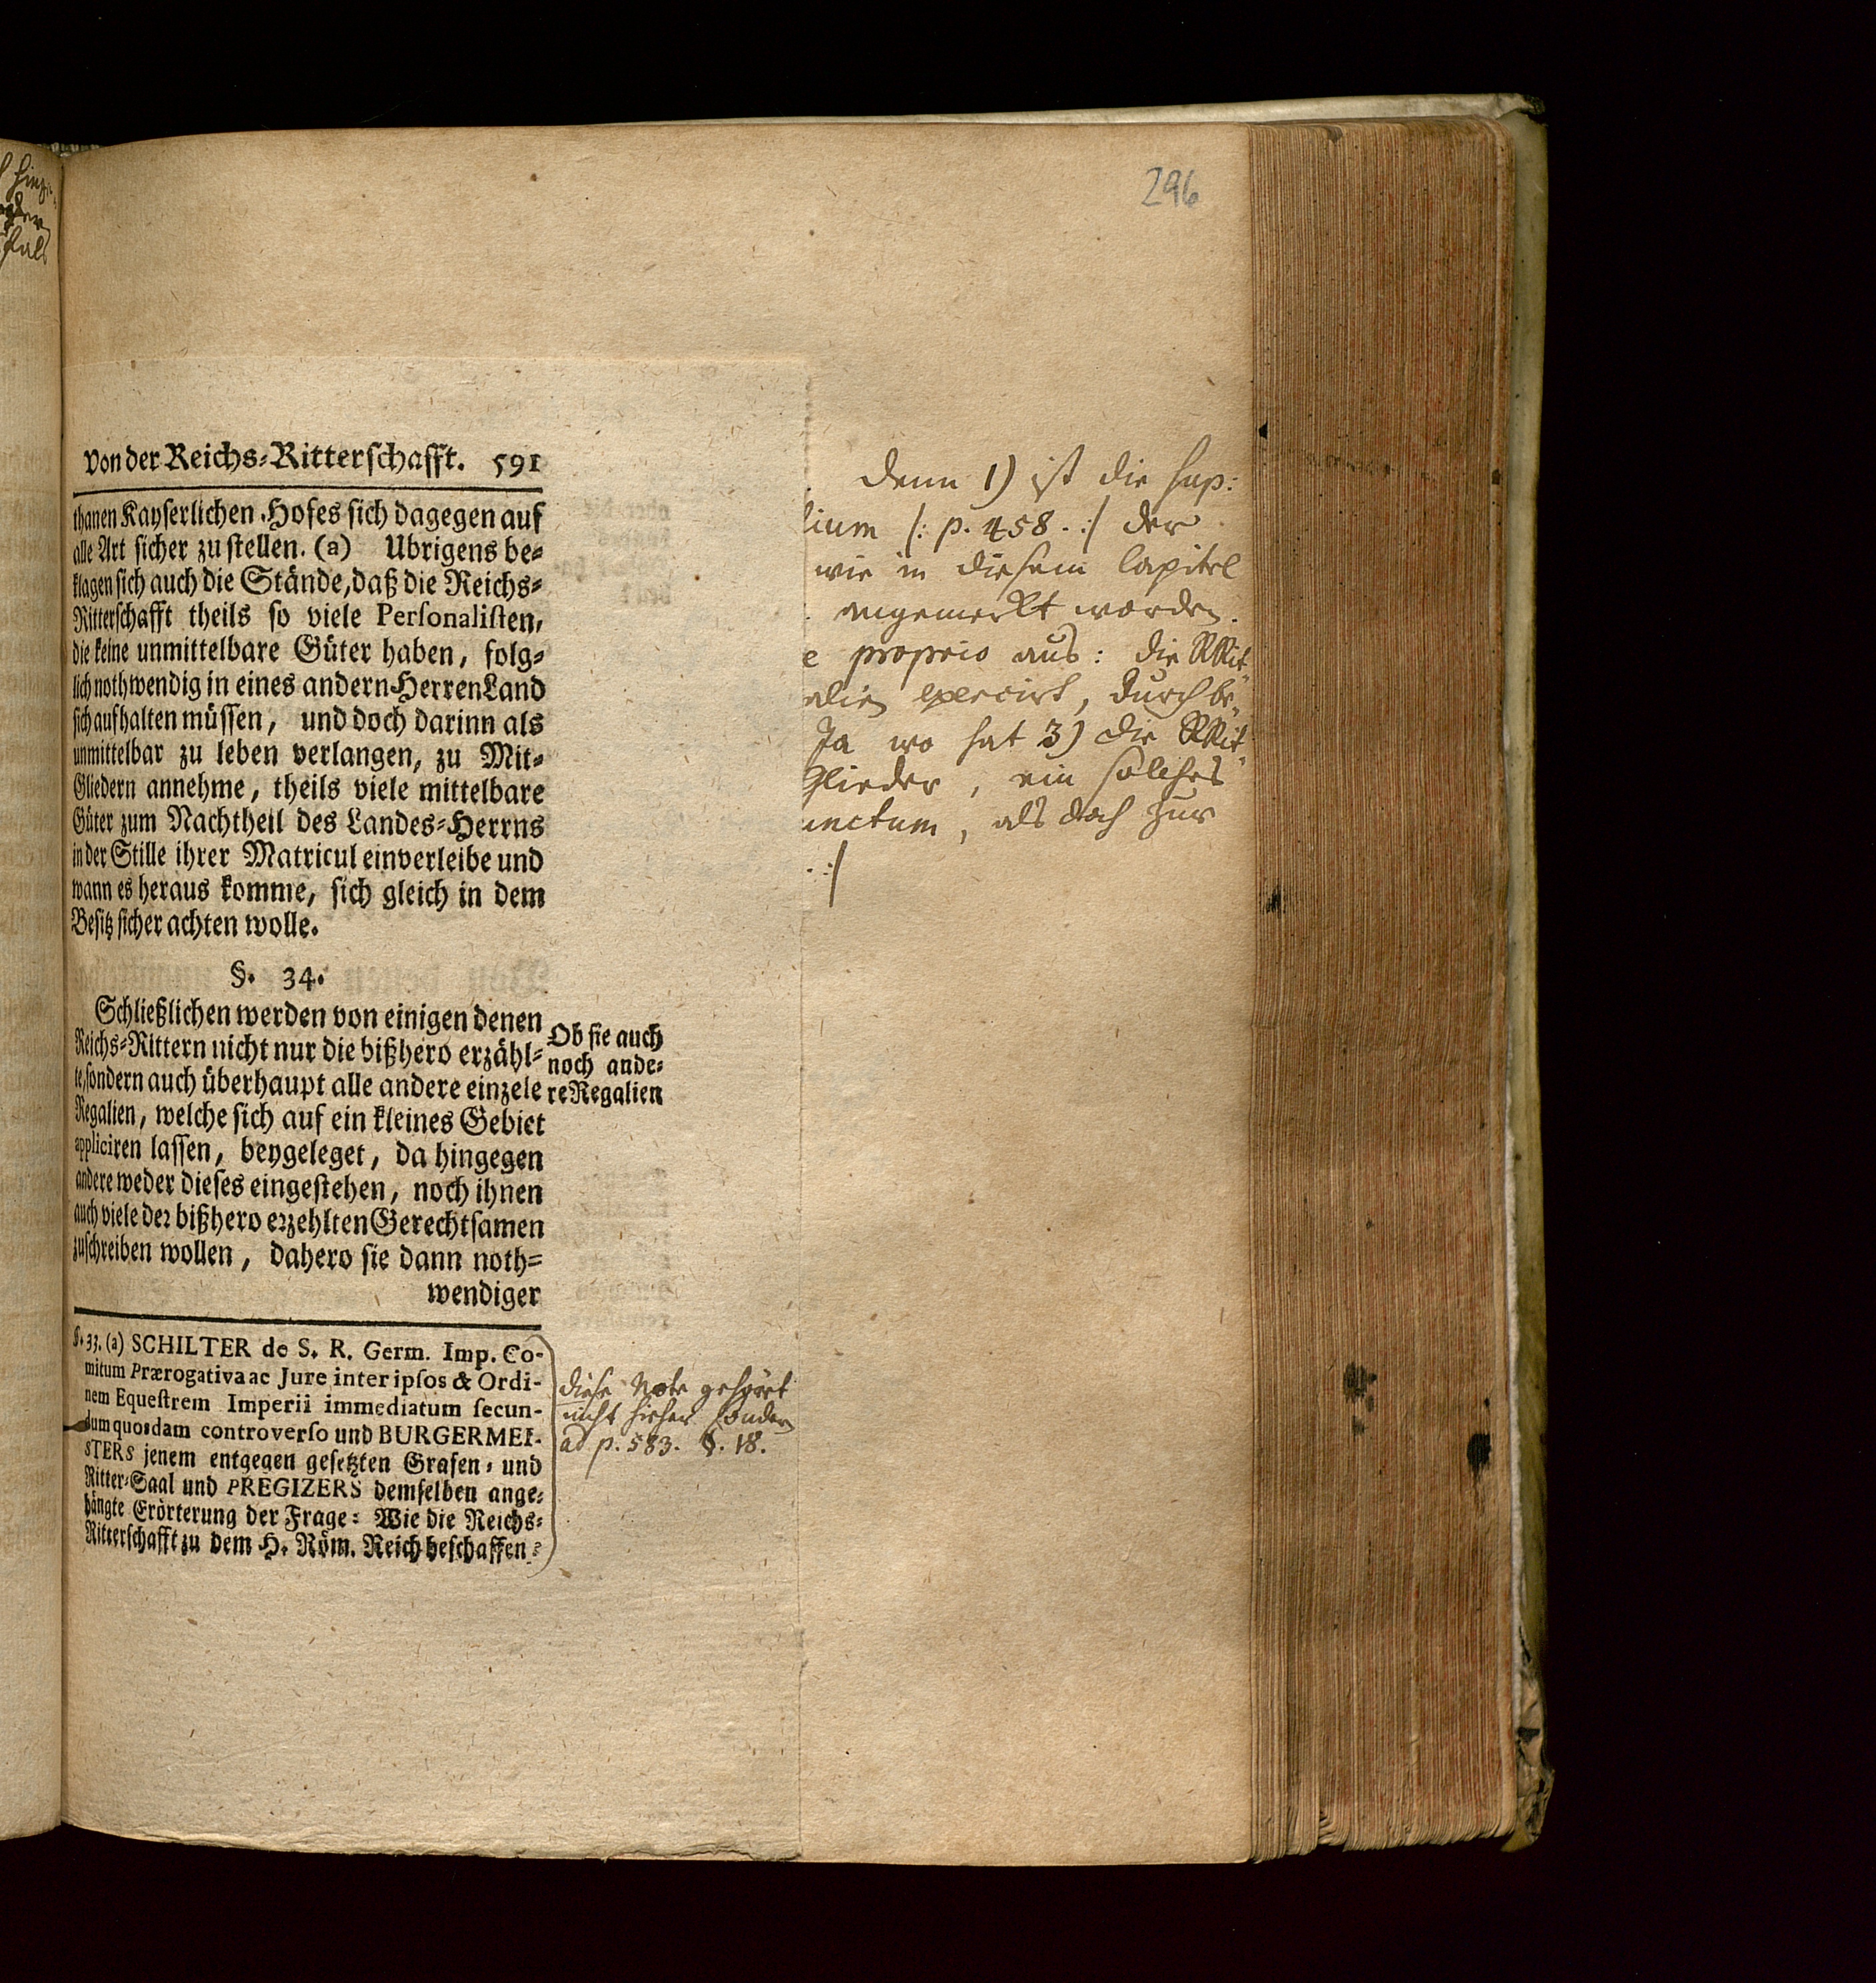 296
von der Reichs-Ritterschafft. 591
thanen Kayserlichen Hofes sich dagegen auf
alle Art sicher zu stellen. (a) Ubrigens be-
klagen sich auch die Stände, daß die Reichs-
Ritterschafft theils so viele Personalisten,
die keine unmittelbare Güter haben, folg-
lich nothwendig in eines andern Herren Land
sich aufhalten müssen, und doch darinn als
unmittelbar zu leben verlangen, zu Mit-
Gliedern annehme, theils viele mittelbare
Güter zum Nachtheil des Landes-Herrns
in der Stille ihrer Matricul einverleibe und
wann es heraus komme, sich gleich in dem
Besitz sicher achten wolle.
§. 34.
Schließlichen werden von einigen denen
Reichs-Rittern nicht nur die bißhero erzähl-
te, sondern auch überhaupt alle andere einzele
Regalien, welche sich auf ein kleines Gebiet
appliciren lassen, beygeleget, da hingegen
andere weder dieses eingestehen, noch ihnen
auch viele der bißhero erzehlten Gerechtsamen
zuschreiben wollen, dahero sie dann noth-
wendiger
Ob sie auch
noch ande-
re Regalien
§. 33. (a) SCHILTER de S. R. Germ. Imp. Co-
mitum Prærogativa ac Jure inter ipsos & Ordi-
nem Equestrem Imperii immediatum secun-
dum quosdam controverso und BURGERMEI-
STERS jenem entgegen gesetzten Grafen- und
Ritter-Saal und PREGIZERS demselben ange-
hängte Erörterung der Frage: Wie die Reichs-
Ritterschafft zu dem H. Röm. Reich beschaffen-
diese Note gehört
nicht hieher sondern
ad p. 583. §. 18.
denn 1) ist die sup:
lium /: p. 458. :/ der
wie in diesem Capitel
angemerkt worden.
e proprio aus: die RRit
alien exercirt, durch be
Ja wo hat 3) die RRit
Glieder, ein solches
unctum, als doch zur
:/